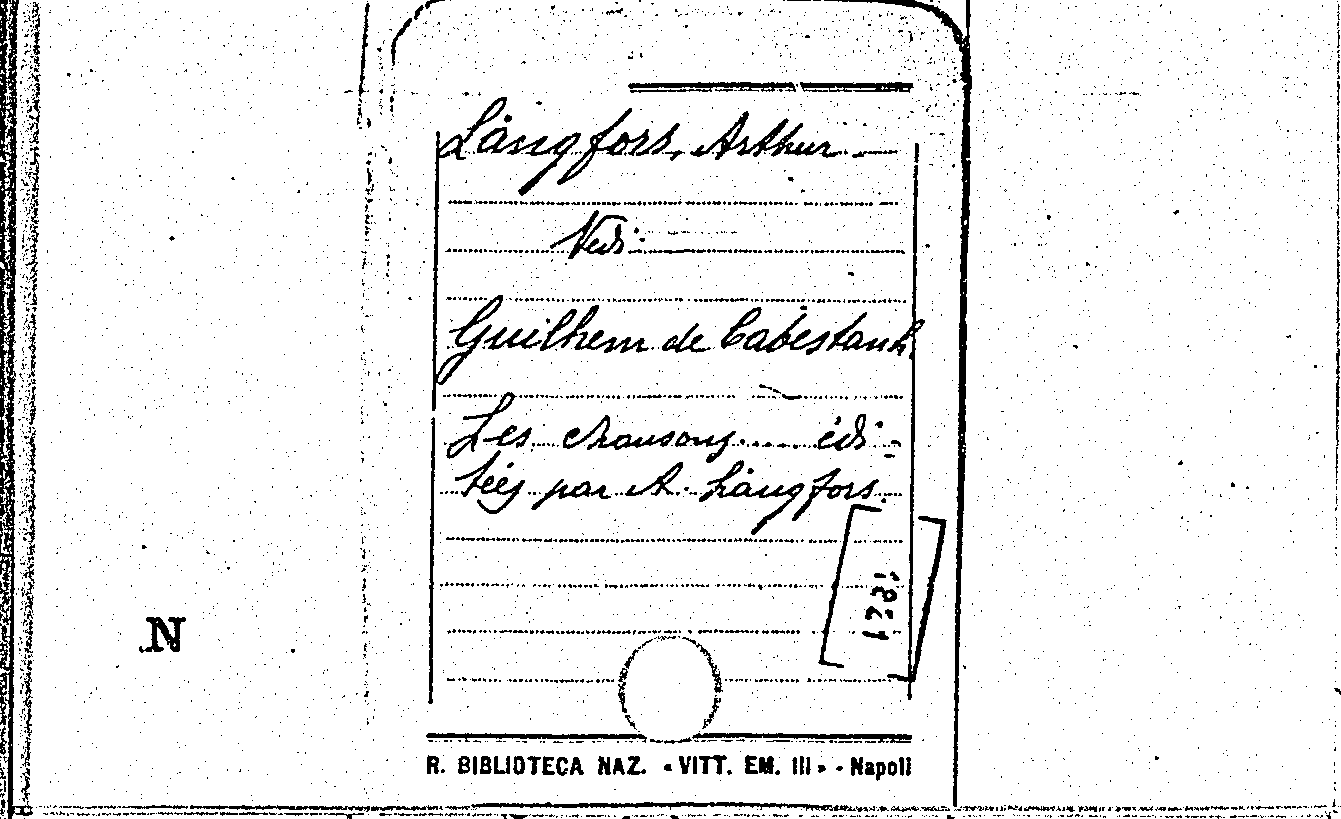 Längfors, Arthur —
Vedi:
Guilhem de Cabestanh.
Les chansons.... édi-
tées par A. Längfors.
N
R. BIBLIOTECA NAZ. «VITT. EM. III» - Napoli